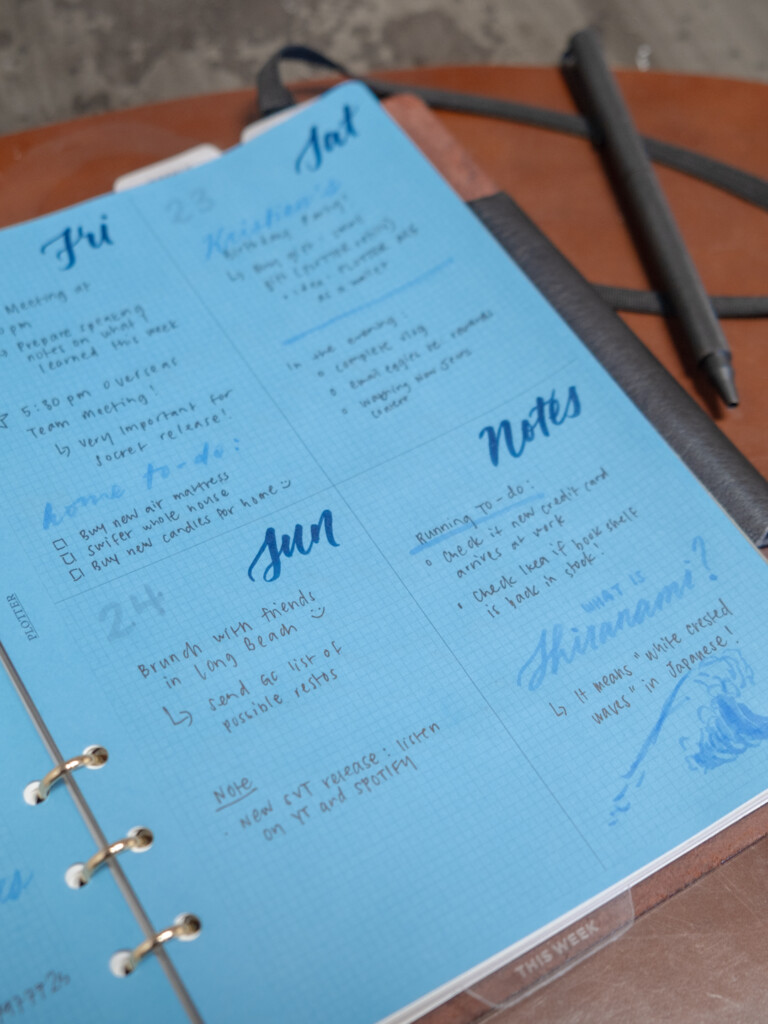 Fri
Meeting at
pm
Prepare speaking
notes on what I
learned this week
5:30 pm overseas
Team Meeting!
↳ very important for
secret release!
home to-do:
□ Buy new air mattress
□ Swifer whole house
□ Buy new candles for home
Sat
23
Birthday Party!
In the evening:
complete vlog
Notes
Running To-do:
Check if new credit card
arrives at work
Check Ikea if book shelf
is back in stock!
WHAT IS
Shiranami?
↳ It means "white crested
waves" in Japanese!
Sun
24
Brunch with friends
in Long Beach
↳ Send GC list of
possible restos
Note
New SVT release: listen
on YT and SPOTIFY
PLOTTER
THIS WEEK